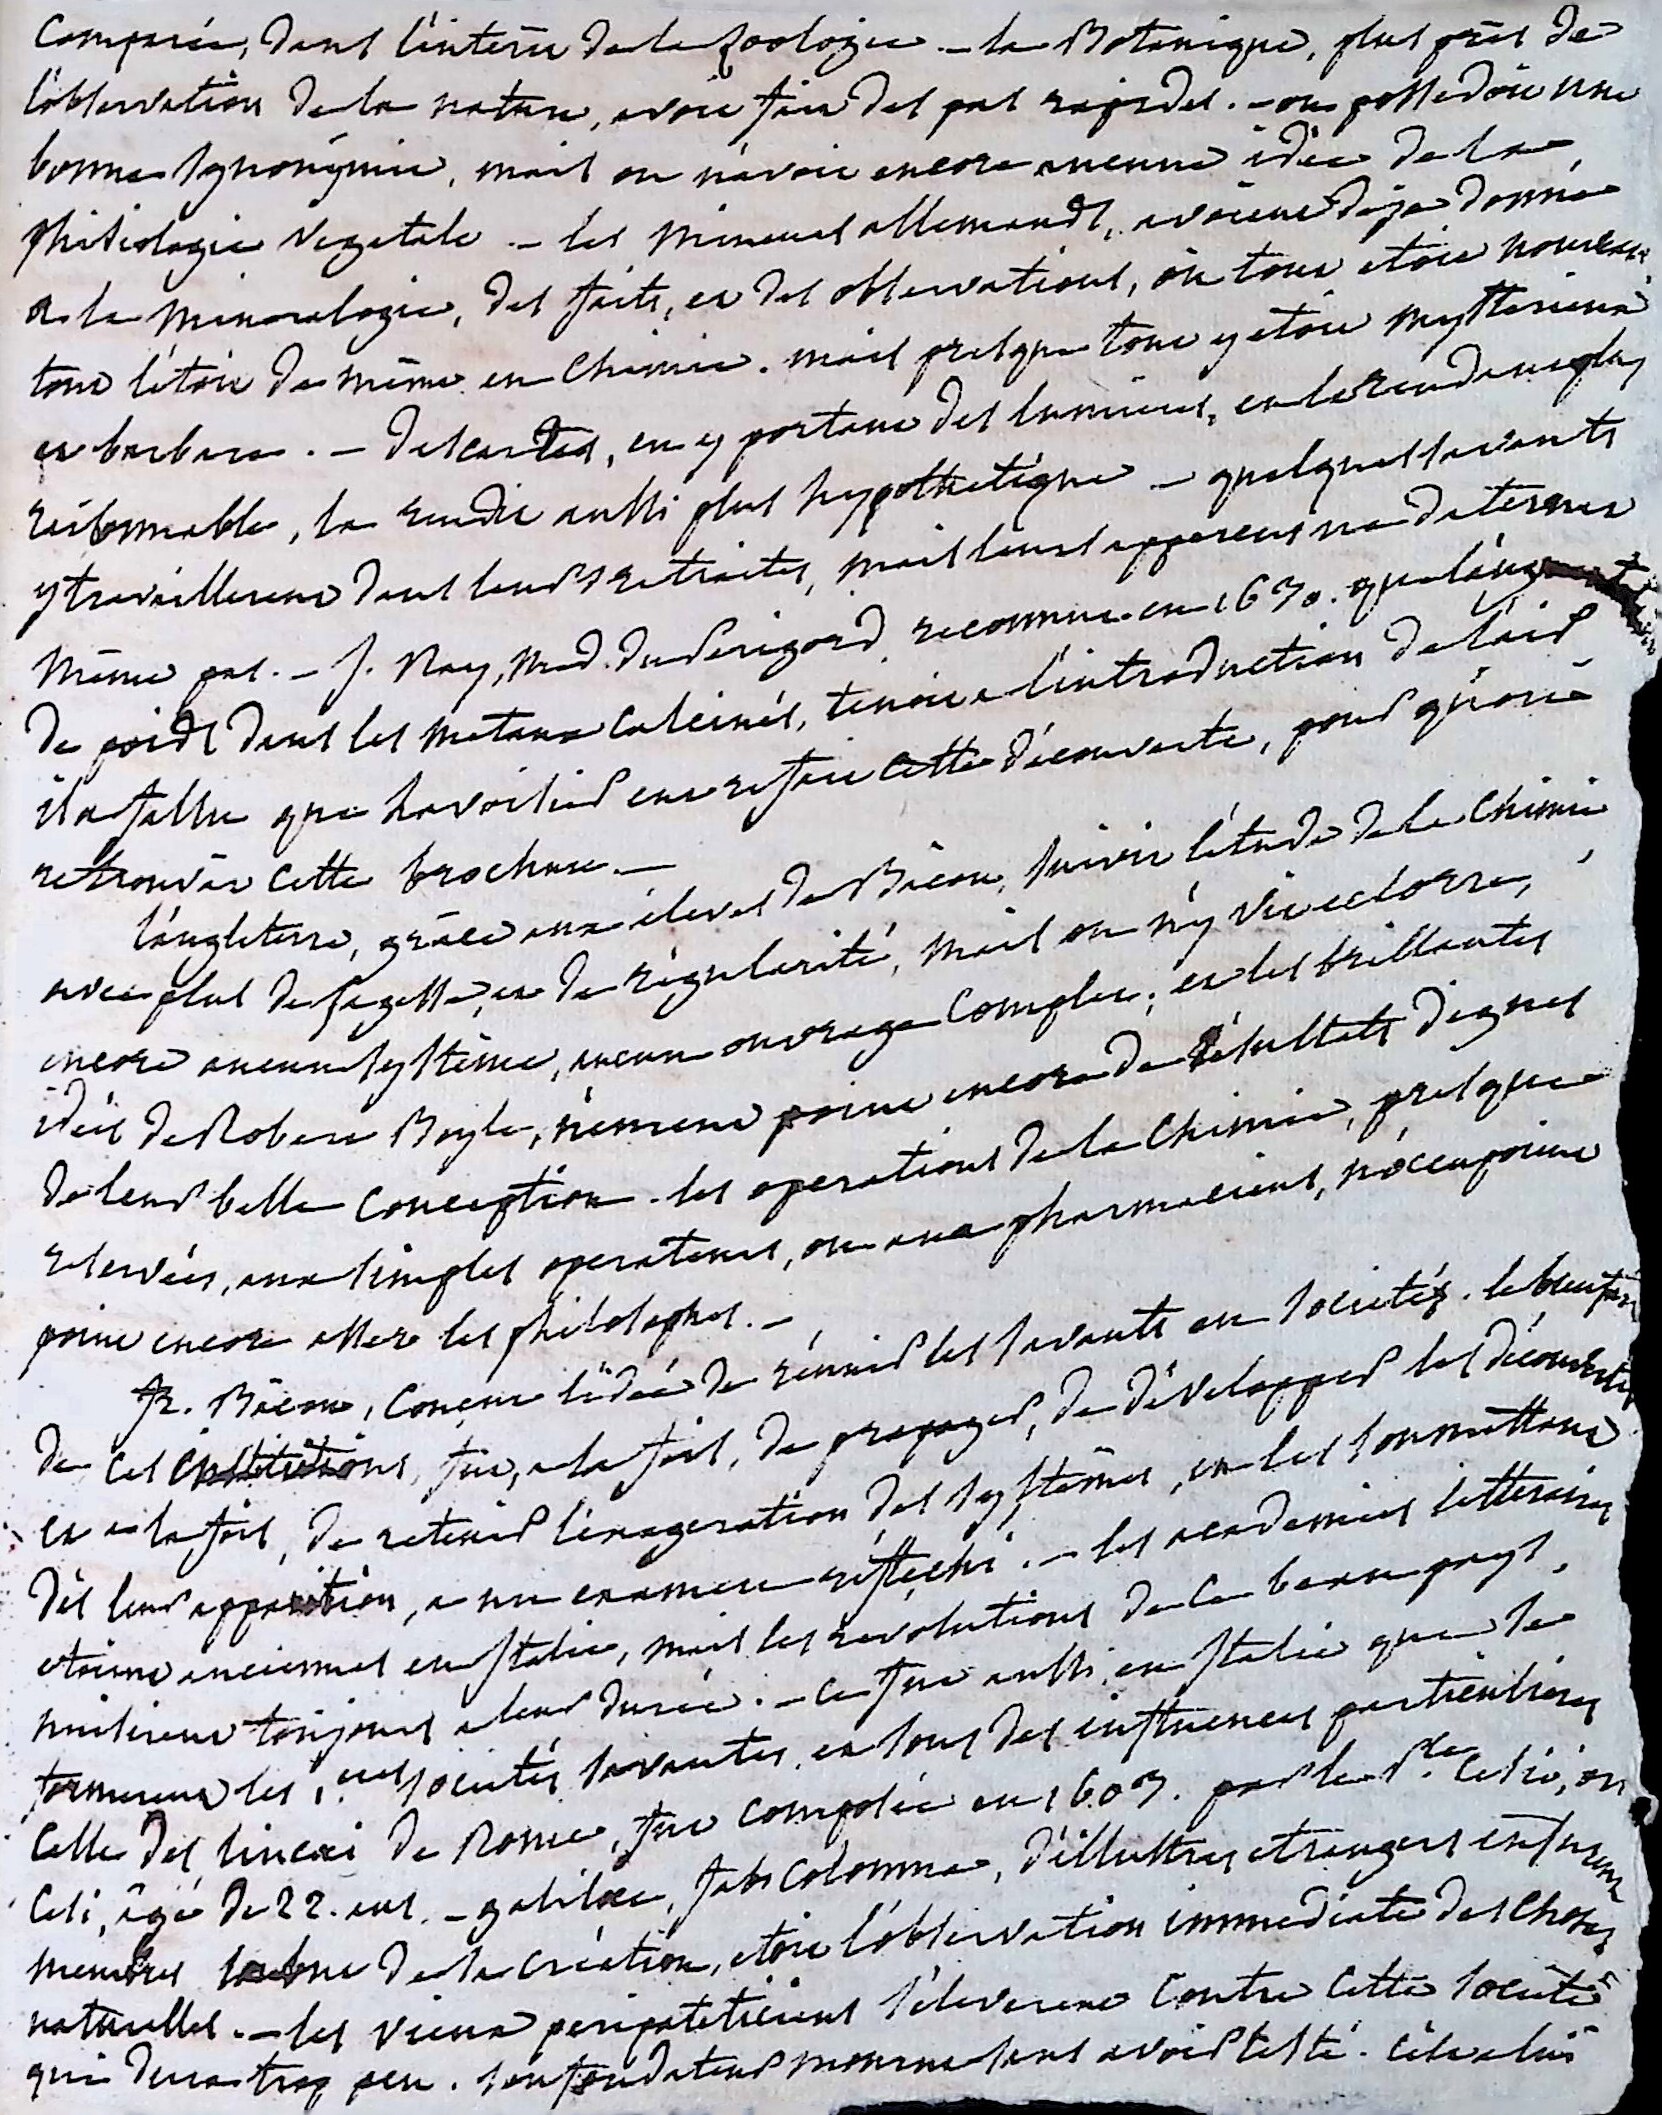 Comparée, dans l'interêt de la Zoologie. – la Botanique, plus près de
l'observation de la nature, avoit fait des pas rapides. – on possedoit une
bonne synonymie, mais on n'avoit encore aucune idée de la
phisiologie vegetale. – les mineurs allemands, avoient deja donné
a la mineralogie, des faits, et des observations, où tout etoit nouveau
tout l'etoit de même en Chimie. mais presque tout y etoit mysterieux
et barbare. – Descartes, en y portant des lumieres, et la rendant plus
raisonnable, la rendit aussi plus hypothetique – quelques savants
y travaillerent dans leurs retraites, mais leurs apperçus ne daterent
même pas. – J. Ray, Med. du Perigord reconnut en 1630. que l'augment
de poids dans les metaux calcinés, tenoit a l'introduction de l'air
il a fallu que Lavoisier eut refait cette découverte, pour qu'on ait
retrouvé cette brochure. –
l'angleterre, grâce aux éleves de Bâcon, suivit l'etude de la Chimie
avec plus de sagesse, et de régularité, mais on n'y vit eclorre,
encore aucun systême, aucun ouvrage complet; et les brillantes
idées de Robert Boyle, n'eurent point encore de résultats dignes
de leur belle conception. les operations de la Chimie, presque
reservées, aux simples operateurs, ou aux pharmaciens, n'occupoient
point encore assez les philosophes. –
fr. Bâcon, conçut l'idée de réunir les savants en societés. le bienfait
de ces institutions, fut, a la fois, de propager, de développer les découvertes
et a la fois, de retenir l'exageration des systêmes, en les soumettant
dès leur apparition, a un examen réfléchi. – les academies litteraires
etoient anciennes en Italie, mais les revolutions de ce beau pays,
nuisirent toujours a leur durée. – ce fut aussi en Italie que se
formerent les 1.eres societés savantes, et sous des influences particulieres
Celle des lincei de Rome, fut composée en 1603. par le P.ce Cesio, ou
Cesi, âgé de 22. ans. – galilée, fab. Colomna, d'illustres etrangers en furent
membres le but de la création, etoit l'observation immediate des Choses
naturelles. – les vieux peripateticiens s'eleverent contre cette societé
qui dura trop peu. son fondateur mourut sans avoir testé. cela a lui